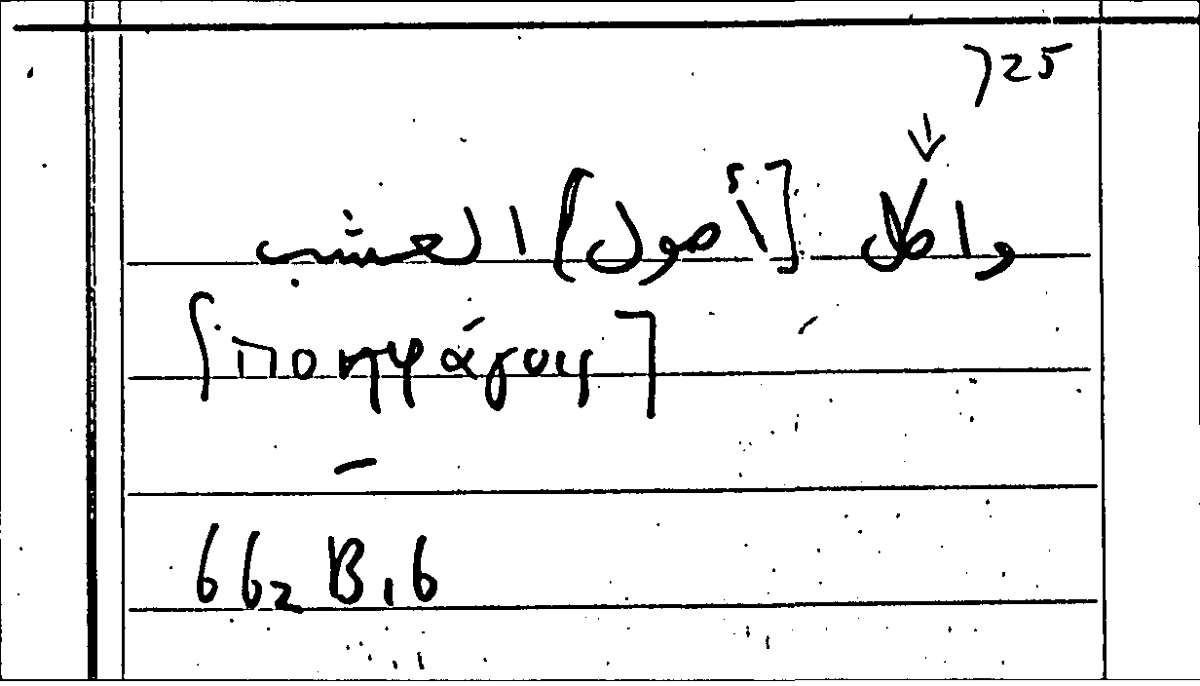 725
↓
واكل [أصول] العشب
[ποηφάγους]
662 B,6